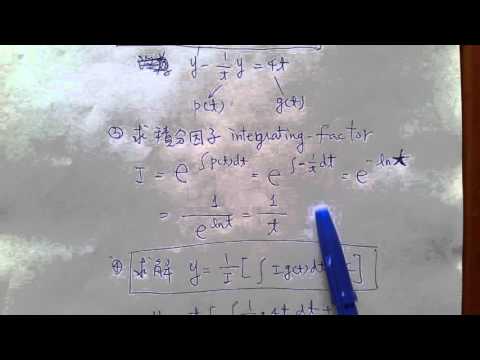 y - 1/t y = 4t
p(t) g(t)
③ 求積分因子 integrating-factor
I = e^∫p(t)dt = e^∫-1/t dt = e^-lnt
= 1/e^lnt = 1/t
④ 求解 y = 1/I [ ∫ I g(t) dt ]